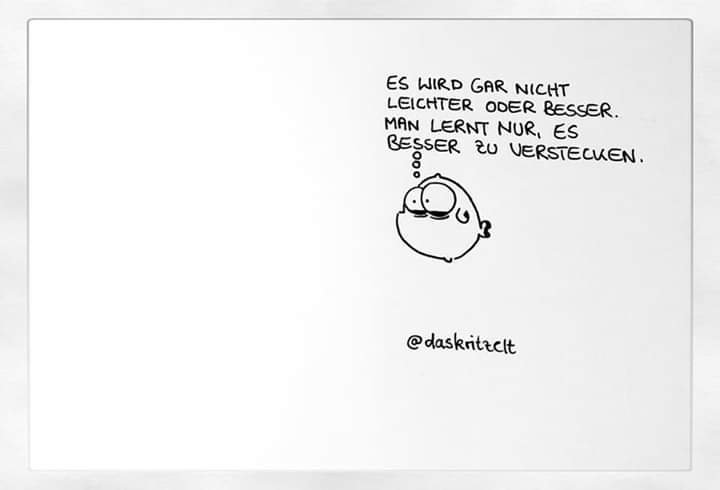 ES WIRD GAR NICHT
LEICHTER ODER BESSER.
MAN LERNT NUR, ES
BESSER ZU VERSTECKEN.
@daskritzelt